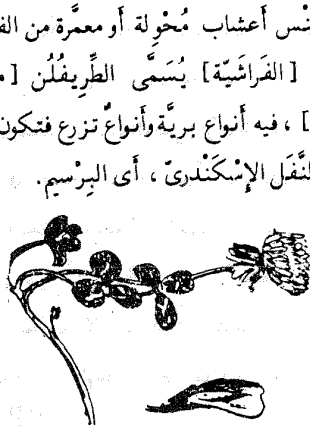 أَعشاب مُحْوِلة أو معمَّرة من
[الفَراشيّة] يُسَمَّى الطِّرِيفُلُن [
] ، فيه أنواع بريَّة وأنواعٌ تزرع فتكون
النَّفَل الإِسْكَنْدرىّ ، أى البِرْسيم.